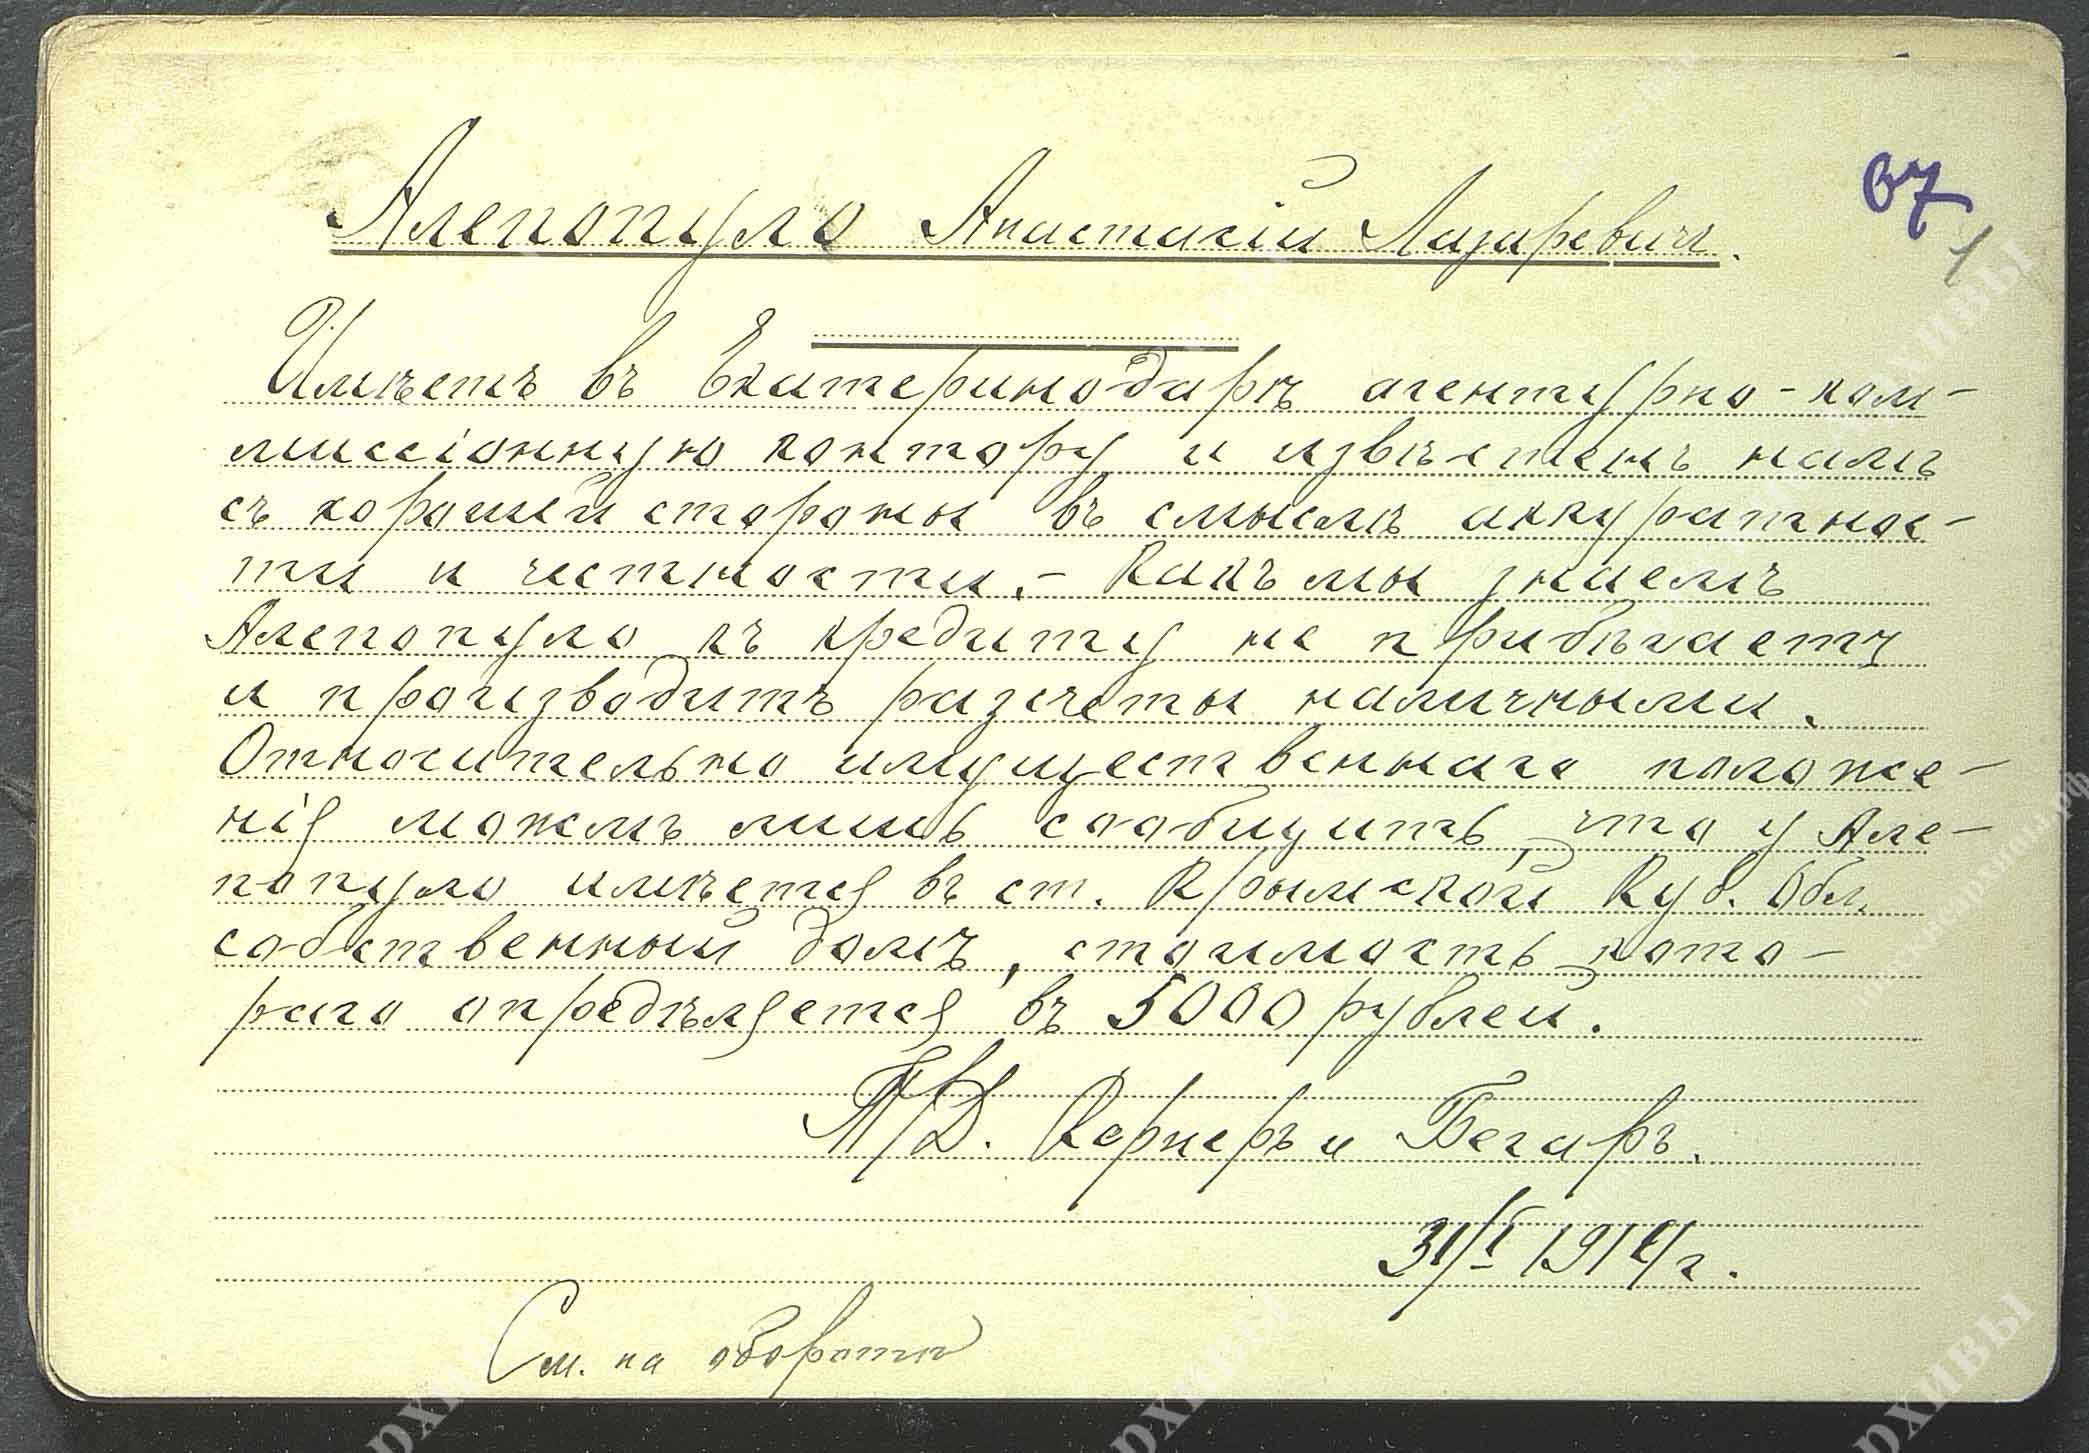 67
1
Алепопуло Анастасій Лазаревичъ.
Имѣетъ въ Екатеринодарѣ агентурно-ком-
миссіонную контору и извѣстенъ намъ
съ хорошей стороны въ смыслѣ аккуратнос-
ти и честности. – Какъ мы знаемъ
Алепопуло къ кредиту не прибѣгаетъ
и производитъ разсчеты наличными.
Относительно имущественнаго положе-
нія можемъ лишь сообщить, что у Але-
популо имѣется въ ст. Крымской Куб. Обл.
собственный домъ, стоимость кото-
раго опредѣляется въ 5000 рублей.
Т/Д. Кернеръ и Бегаръ.
31/I 1914 г.
См. на оборотѣ